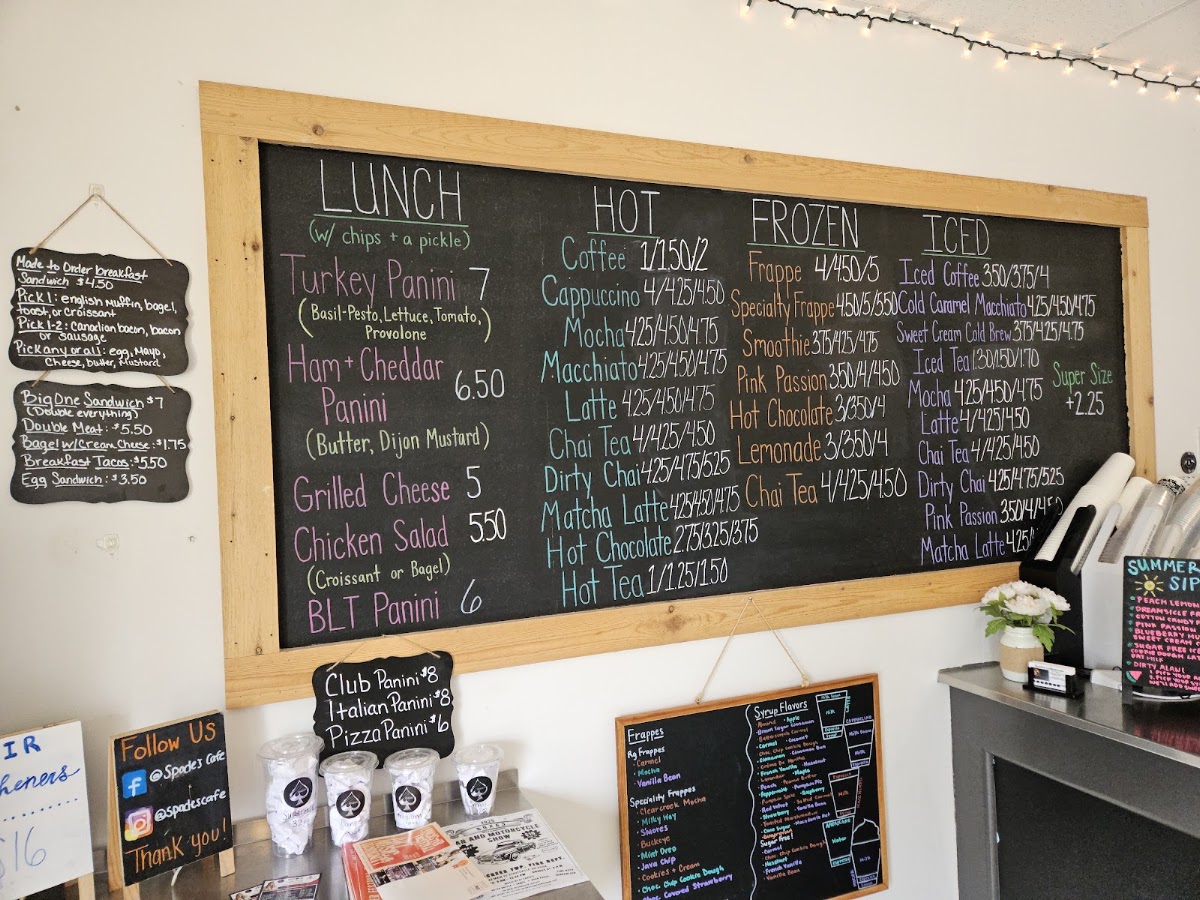 Made to Order breakfast
Sandwich $4.50
Pick 1: english muffin, bagel,
toast, or croissant
Pick 1-2: Canadian bacon, bacon
or sausage
Pick any or all: egg, Mayo,
Cheese, butter, Mustard
Big One Sandwich $7
(Double everything)
Double Meat: $5.50
Bagel w/Cream Chese: $1.75
Breakfast Tacos: $5.50
Egg Sandwich: $3.50
LUNCH
(w/ chips + a pickle)
Turkey Panini 7
(Basil-Pesto, Lettuce, Tomato,
Provolone)
Ham + Cheddar
Panini 6.50
(Butter, Dijon Mustard)
Grilled Cheese 5
Chicken Salad 5.50
(Croissant or Bagel)
BLT Panini 6
HOT
Coffee 1/1.50/2
Cappuccino 4/4.25/4.50
Mocha 4.25/4.50/4.75
Macchiato 4.25/4.50/4.75
Latte 4.25/4.50/4.75
Chai Tea 4/4.25/4.50
Dirty Chai 4.25/4.75/5.25
Matcha Latte 4.25/4.50/4.75
Hot Chocolate 2.75/3.25/3.75
Hot Tea 1/1.25/1.50
FROZEN
Frappe 4/4.50/5
Specialty Frappe 4.50/5/5.50
Smoothie 3.75/4.25/4.75
Pink Passion 3.50/4/4.50
Hot Chocolate 3/3.50/4
Lemonade 3/3.50/4
Chai Tea 4/4.25/4.50
ICED
Iced Coffee 3.50/3.75/4
Cold Caramel Macchiato 4.25/4.50/4.75
Sweet Cream Cold Brew 3.75/4.25/4.75
Iced Tea 1.30/1.50/1.70
Mocha 4.25/4.50/4.75
Latte 4/4.25/4.50
Chai Tea 4/4.25/4.50
Dirty Chai 4.25/4.75/5.25
Pink Passion 3.50/4/4.5
Matcha Latte 4.25/
Super Size
+2.25
Club Panini $8
Italian Panini $8
Pizza Panini $6
$16
Follow Us
@Spade's Cafe
@spadescafe
Thank you!
Frappes
Rg Frappes
• Caramel
• Mocha
• Vanilla Bean
Specialty Frappes
• Clearcreek Mocha
• Milky Way
• S'mores
• Buckeye
• Mint Oreo
• Java Chip
• Cookies + Cream
• Choc. Chip Cookie Dough
• Choc. Covered Strawberry
Syrup Flavors
Sugar Free
SUMMER
SIP
PEACH LEMON
PINK PASSION
SWEET CREAM
SUGAR FREE
DIRTY ALANI
AND MOTORCYCLE
SHOW